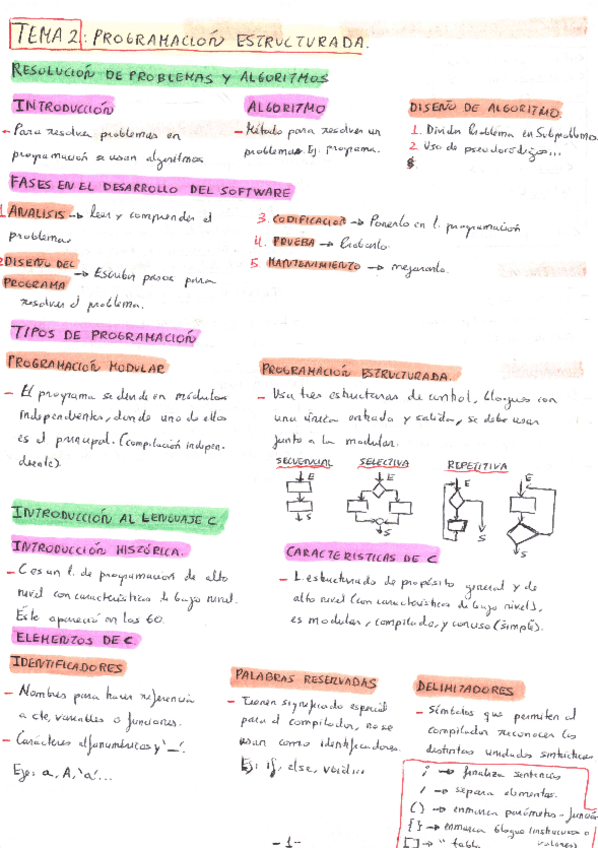 TEMA 2: PROGRAMACIÓN ESTRUCTURADA.
RESOLUCIÓN DE PROBLEMAS Y ALGORITMOS
INTRODUCCIÓN
- Para resolver problemas en
programación se usan algoritmos
ALGORITMO
- Método para resolver un
problema. Ej. programa.
DISEÑO DE ALGORITMO
1. Dividir Problema en Subproblemas
2. Uso de pseudocódigos...
FASES EN EL DESARROLLO DEL SOFTWARE
1. ANALISIS → leer y comprender el
problema
2. DISEÑO DEL
PROGRAMA → Escribir pasos para
resolver el problema.
3. CODIFICACIÓN → Ponerlo en l. programación
4. PRUEBA → Probarlo.
5. MANTENIMIENTO → mejorarlo.
TIPOS DE PROGRAMACIÓN
PROGRAMACIÓN MODULAR
- El programa se divide en módulos
independientes, donde uno de ellos
es el principal. (compilación indepen-
diente).
PROGRAMACIÓN ESTRUCTURADA.
- Usa tres estructuras de control, bloques con
una única entrada y salida, se debe usar
junto a la modular.
SECUENCIAL
E
S
SELECTIVA
E
S
REPETITIVA
E
S
E
S
INTRODUCCIÓN AL LENGUAJE C.
INTRODUCCIÓN HISTÓRICA.
- C es un l. de programación de alto
nivel con características de bajo nivel.
Este apareció en los 60.
CARACTERISTICAS DE C
- L. estructurado de propósito general y de
alto nivel (con características de bajo nivel),
es modular, compilado, y conciso (simple).
ELEMENTOS DE C.
IDENTIFICADORES
- Nombres para hacer referencia
a cte, variables o funciones.
- Carácteres alfanuméricos y '_'.
Ejs: a, A, 'a'...
PALABRAS RESERVADAS
- Tienen significado especial
para el compilador, no se
usan como identificadores.
Ej: if, else, void...
DELIMITADORES
- Símbolos que permiten al
compilador reconocer las
distintas unidades sintácticas
; → finaliza sentencias
, → separa elementos.
( ) → enmarca parámetros - función
{ } → enmarca bloque (instrucc. o
valores)
[ ] → " tabla
- 1 -